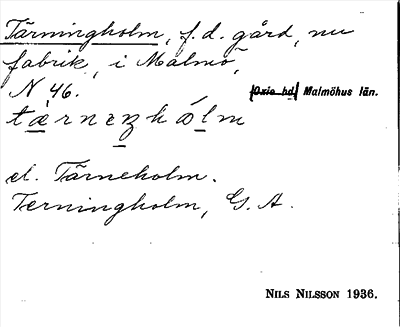 Tärningholm, f.d. gård, nu
fabrik, i Malmö,
N 46. Oxie hd Malmöhus län.
tærnezhólm
el. Tärneholm.
Terningholm, G. A.
NILS NILSSON 1936.